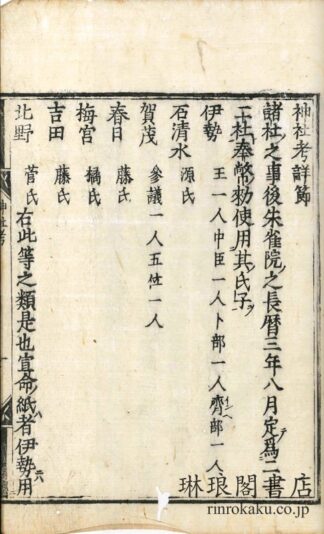 神社考詳節
諸社之事後朱雀院之長暦三年八月定為二
二社奉幣勅使用其氏子
伊勢 王一人中臣一人卜部一人齊部一人
石清水 源氏
賀茂 參議一人五位一人
春日 藤氏
梅宮 橘氏
吉田 藤氏
北野 菅氏 右此等之類是也宣命紙者伊勢用
神社考
琳琅閣書店
rinrokaku.co.jp